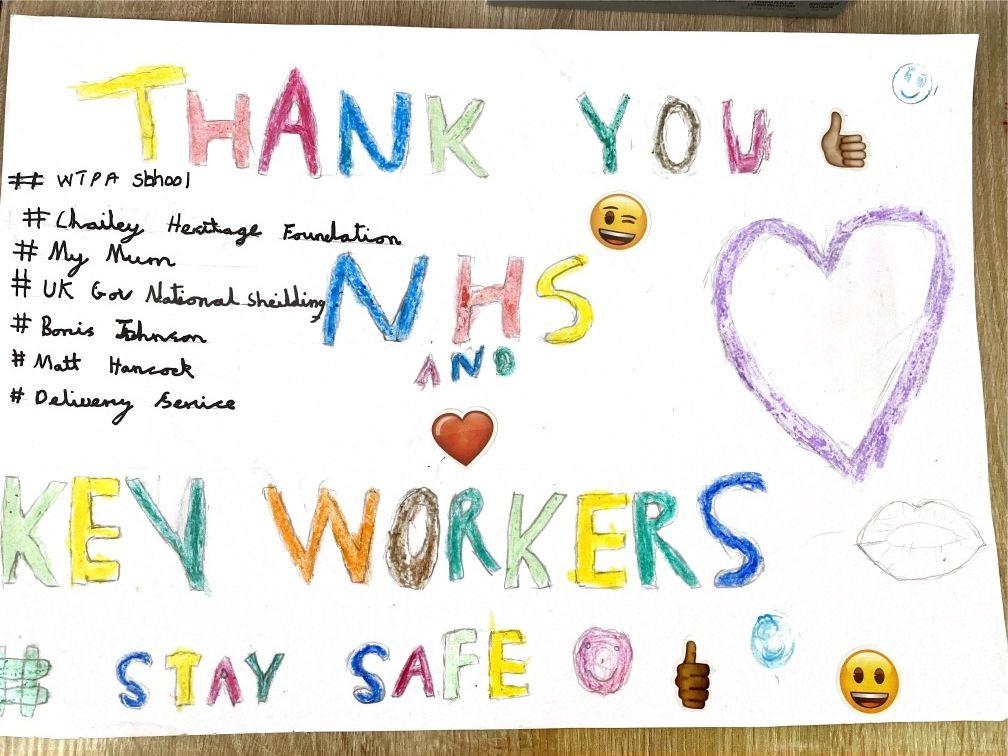 THANK YOU
# WTPA Sbhool
# Chailey Heritage Foundation
# My Mum
# UK Gov National sheilding
# Boris Johnson
# Matt Hancock
# Delivery Service
NHS
AND
KEY WORKERS
# STAY SAFE